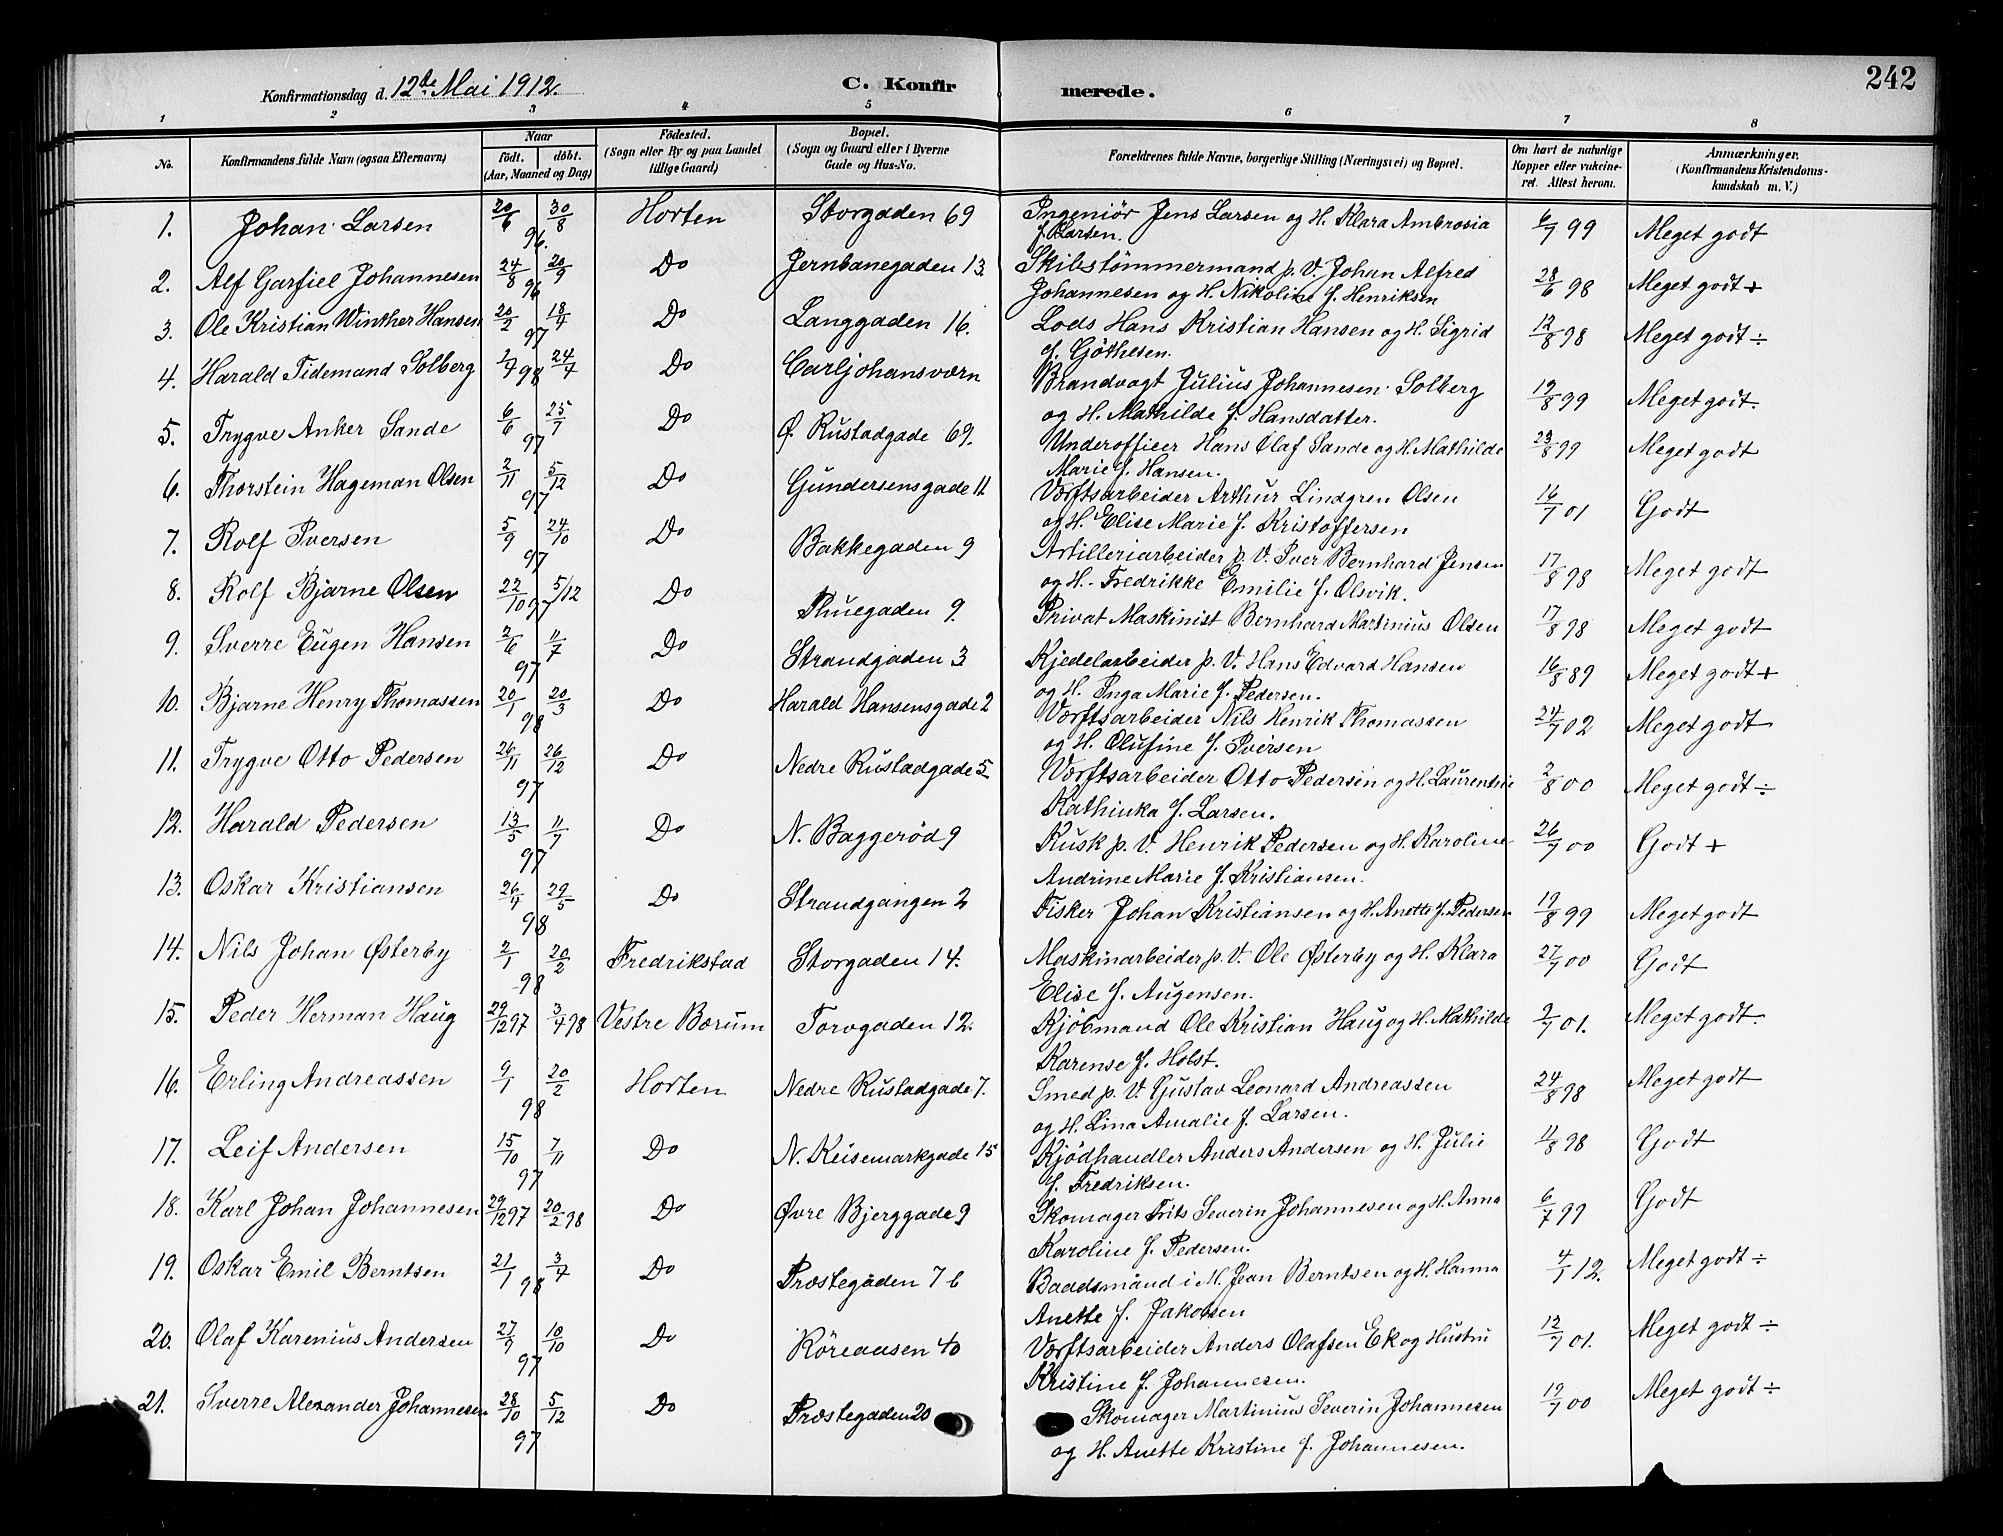 242
Konfirmationsdag d. 12te Mai 1912. C. Konfirmerede.
1 2 3 4 5 6 7 8
No. Konfirmandens fulde Navn (ogsaa Efternavn) Naar født. døbt. (Aar, Maaned og Dag) Fødested. (Sogn eller By og paa Landet tillige Gaard) Bopæl. (Sogn og Gaard eller i Byerne Gade og Hus-No. Forældrenes fulde Navne, borgerlige Stilling (Næringsvei) og Bopæl. Om havt de naturlige Kopper eller vakcineret. Attest herom. Anmærkninger. (Konfirmandens Kristendomskundskab m. V.)
1. Johan Larsen 20/6 30/8 96. Horten Storgaden 69 Ingeniør Jens Larsen og H. Klara Ambrosia f. Larsen. 6/7 99 Meget godt
2. Alf Garfiel Johannesen 24/8 20/9 96 Do Jernbanegaden 13 Skibstømmermand p. V. Johan Alfred Johannesen og H. Nikoline f. Henriksen 28/6 98 Meget godt +
3. Ole Kristian Winther Hansen 20/2 18/4 97 Do Langgaden 16. Lods Hans Kristian Hansen og H. Sigrid f. Göthesen. 12/8 98 Meget godt ÷
4. Harald Tidemand Solberg 1/4 98 24/4 Do Carljohansværn Brandvagt Julius Johannesen Solberg og H. Mathilde f. Hansdatter. 19/8 99 Meget godt.
5. Trygve Anker Sande 6/6 25/7 97 Do Ø. Rustadgade 69. Underofficer Hans Olaf Sande og H. Mathilde Marie f. Hansen. 23/8 99 Meget godt
6. Thorstein Hageman Olsen 2/11 5/12 97 Do Gundersensgade 11 Værftsarbeider Arthur Lindgren Olsen og H. Elise Marie f. Kristoffersen 16/7 01 Godt
7. Rolf Iversen 5/9 24/10 97 Do Bakkegaden 9 Artilleriarbeider p. V. Iver Bernhard Jensen og H. Fredrikke Emilie f. Olsvik. 17/8 98 Meget godt
8. Rolf Bjarne Olsen 22/10 97 5/12 Do Thuegaden 9. Privat Maskinist Bernhard Martinius Olsen 17/8 98 Meget godt
9. Sverre Eugen Hansen 2/6 11/7 97 Do Strandgaden 3 Kjedelarbeider p. V. Hans Edvard Hansen og H. Inga Marie f. Pedersen. 16/8 89 Meget godt +
10. Bjarne Henry Thomassen 20/1 20/3 98 Do Harald Hansensgade 2 Værftsarbeider Nils Henrik Thomassen og H. Olufine f. Iversen 24/7 02 Meget godt
11. Trygve Otto Pedersen 26/11 26/12 97 Do Nedre Rustadgade 5 Værftsarbeider Otto Pedersen og H. Laurentsie Kathinka f. Larsen. 2/8 00 Meget godt ÷
12. Harald Pedersen 13/5 11/7 97 Do N. Baggerød 9 Kusk p. V. Henrik Pedersen og H. Karoline Andrine Marie f. Kristiansen. 26/7 00 Godt +
13. Oskar Kristiansen 26/4 29/5 98 Do Strandgangen 2 Fisker Johan Kristiansen og H. Anette f. Pedersen 19/8 99 Meget godt
14. Nils Johan Østerby 2/1 20/2 98 Fredrikstad Storgaden 14. Maskinarbeider p. V. Ole Østerby og H. Klara Elise f. Augensen. 27/7 00 Godt
15. Peder Herman Haug 29/12 97 3/4 98 Vestre Bærum Torvgaden 12. Kjöbmand Ole Kristian Haug og H. Mathilde Karense f. Holst. 9/7 01. Meget godt.
16. Erling Andreassen 9/1 20/2 98 Horten Nedre Rustadgade 7. Smed p. V. Gustav Leonard Andreassen og H. Lina Amalie f. Larsen. 24/8 98 Meget godt
17. Leif Andersen 15/10 7/11 97 Do N. Keisemarkgade 15 Kjödhandler Anders Andersen og H. Julie f. Fredriksen. 11/8 98 Godt
18. Karl Johan Johannesen 29/12 97 20/2 98 Do Øvre Bjerggade 9 Skomager Frits Severin Johannesen og H. Anna Karoline f. Pedersen. 6/7 99 Godt
19. Oskar Emil Berntsen 21/1 98 3/4 Do Præstegaden 7 b Baadsmand i M. Jean Berntsen og H. Hanna Anette f. Jakobsen 4/1 12. Meget godt ÷
20. Olaf Karenius Andersen 27/9 10/10 97 Do Röreaasen 40 Værftsarbeider Anders Olafsen Ek og Hustru Kristine f. Johannesen. 12/7 01. Meget godt ÷
21. Sverre Alexander Johannesen 28/10 5/12 97 Do Præstegaden 20 Skomager Martinius Severin Johannesen og H. Anette Kristine f. Johannesen. 19/7 00 Meget godt ÷